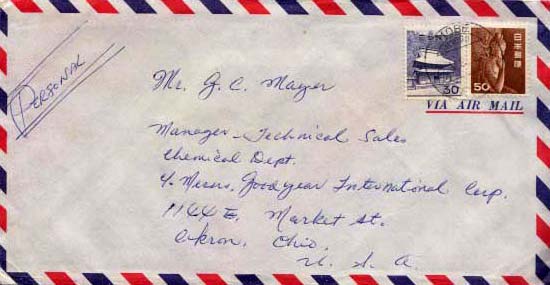 Personal
Mr. G. C. Mayer
Manager - Technical Sales
Chemical Dept.
Messrs. Goodyear International Corp.
1144 E. Market St.
Akron, Ohio.
U. S. A.
30
日本郵便
50
VIA AIR MAIL